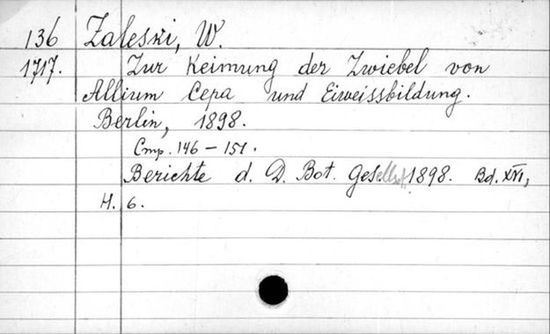 136 Zaleski, W.
1717. Zur Keimung der Zwiebel von
Allium Cepa und Eiweissbildung.
Berlin, 1898.
Стр. 146 – 151.
Berichte d. D. Bot. Gesellsch. 1898. Bd. XVI,
H. 6.